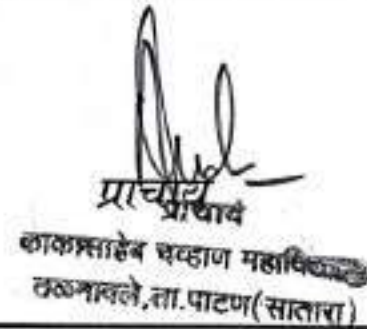 प्राचार्य
प्राचार्य
काकासाहेब चव्हाण महाविद्यालय
तळमावले, ता. पाटण (सातारा)